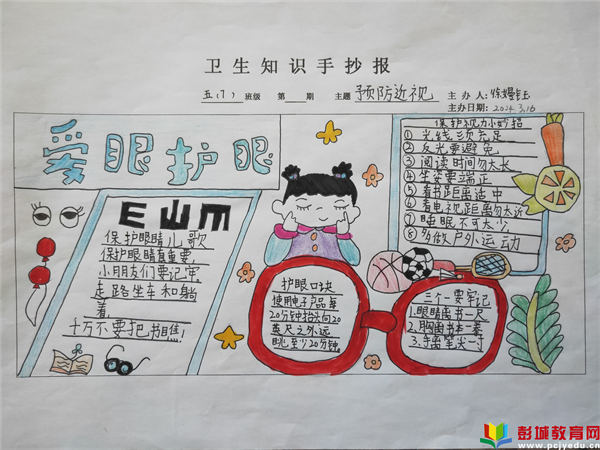 卫生知识手抄报
五(7) 班级 第 期 主题 预防近视 主办人:
主办日期: 2024.3.16
爱眼护眼
E W M
保护眼睛儿歌
保护眼睛真重要,
小朋友们要记牢
走路坐车和躺
着
千万不要把书瞧!
护眼口诀
使用电子产品每
20分钟抬头向20
英尺之外远
眺至少20分钟。
保护视力小妙招
① 光线须充足
② 反光要避免
③ 阅读时间勿太长
④ 坐姿要端正
⑤ 看书距离适中
⑥ 看电视距离勿太近
⑦ 睡眠不可太少
⑧ 多做户外运动
三个一要牢记
1.眼睛离书一尺
2.胸离书本一拳
3.手离笔尖一寸
彭城教育网
www.pcjyedu.cn